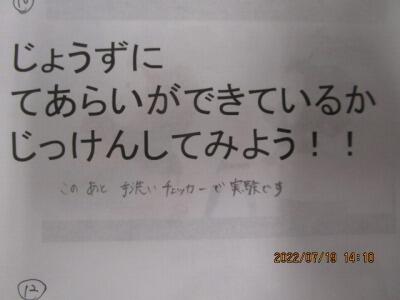 10
じょうずに
てあらいができているか
じっけんしてみよう！！
このあと 手洗いチェッカーで実験です
2022/07/19 14:10
12